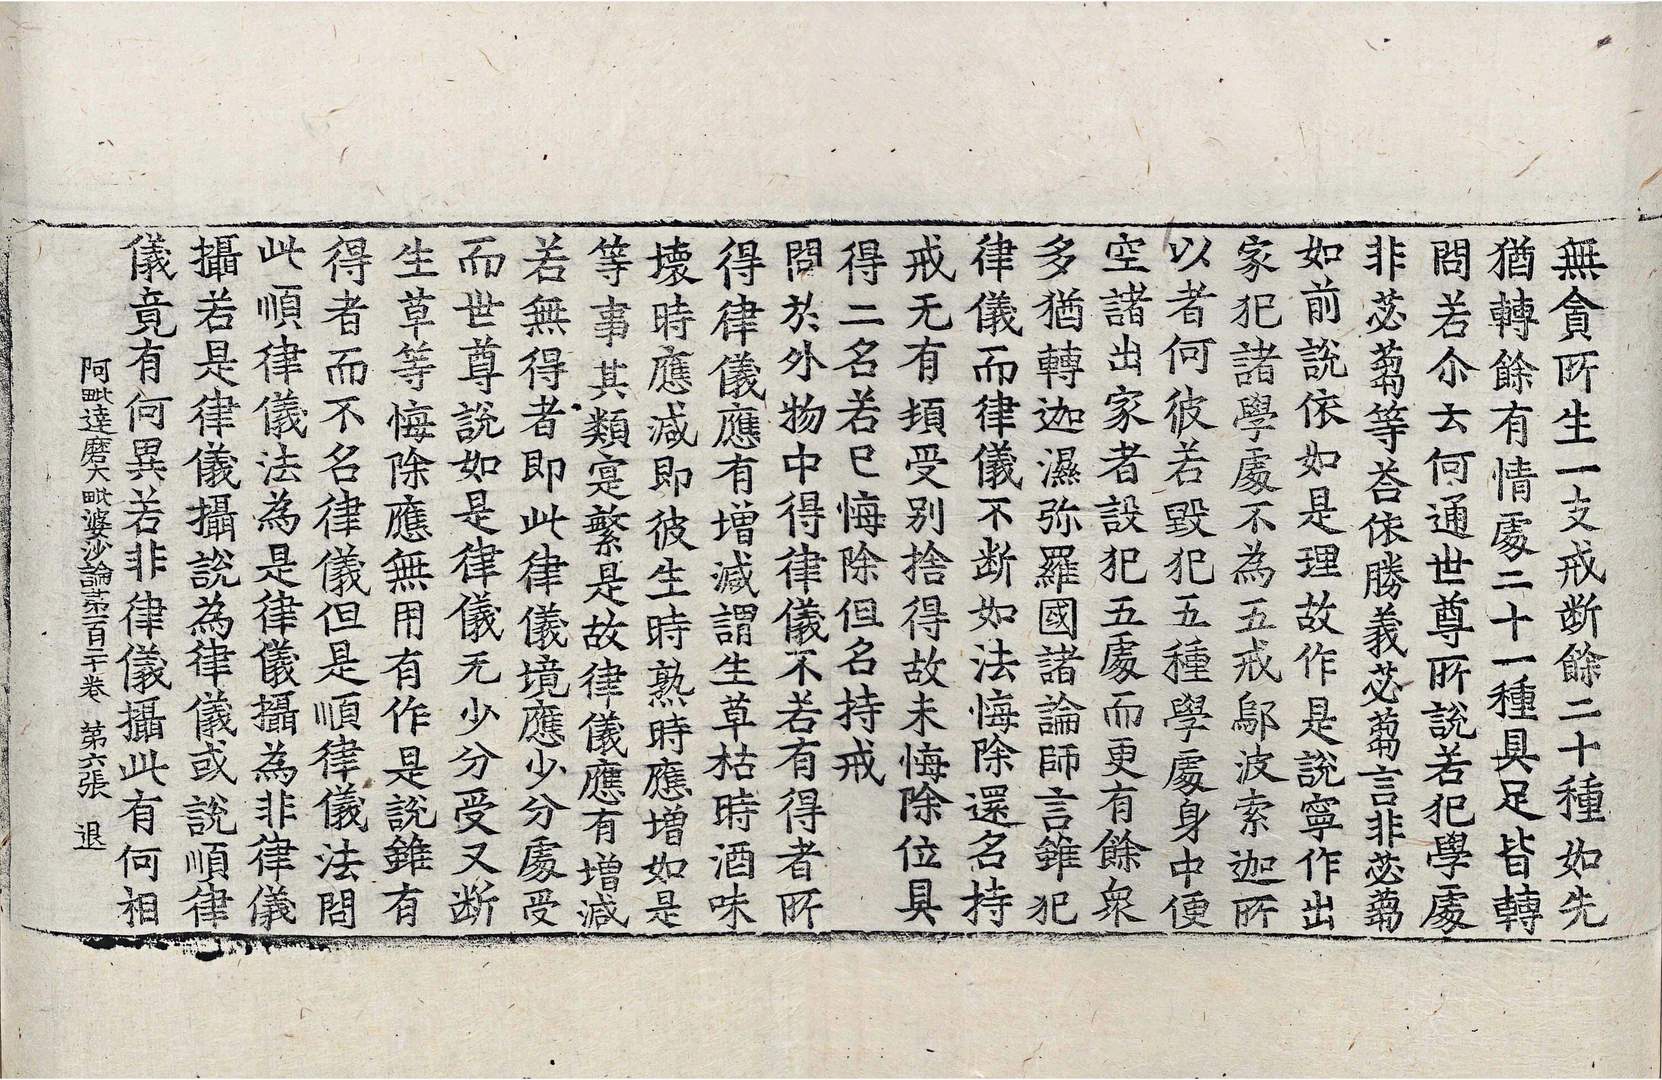 無貪所生一支戒断餘二十種如先
猶轉餘有情處二十一種具足皆轉
問若尒云何通世尊所說若犯學處
非苾蒭等荅依勝義苾蒭言非苾蒭
如前說依如是理故作是說寧作出
家犯諸學處不為五戒鄔波索迦所
以者何彼若毀犯五種學處身中便
空諸出家者設犯五處而更有餘衆
多猶轉迦濕弥羅國諸論師言雖犯
律儀而律儀不断如法悔除還名持
戒无有頓受別捨得故未悔除位具
得二名若已悔除但名持戒
問於外物中得律儀不若有得者所
得律儀應有增減謂生草枯時酒味
壞時應減即彼生時熟時應增如是
等事其類寔繁是故律儀應有增減
若無得者即此律儀境應少分處受
而世尊說如是律儀无少分受又断
生草等悔除應無用有作是說雖有
得者而不名律儀但是順律儀法問
此順律儀法為是律儀攝為非律儀
攝若是律儀攝說為律儀或說順律
儀竟有何異若非律儀攝此有何相
阿毗達磨大毗婆沙論第一百二十卷 第六張 退